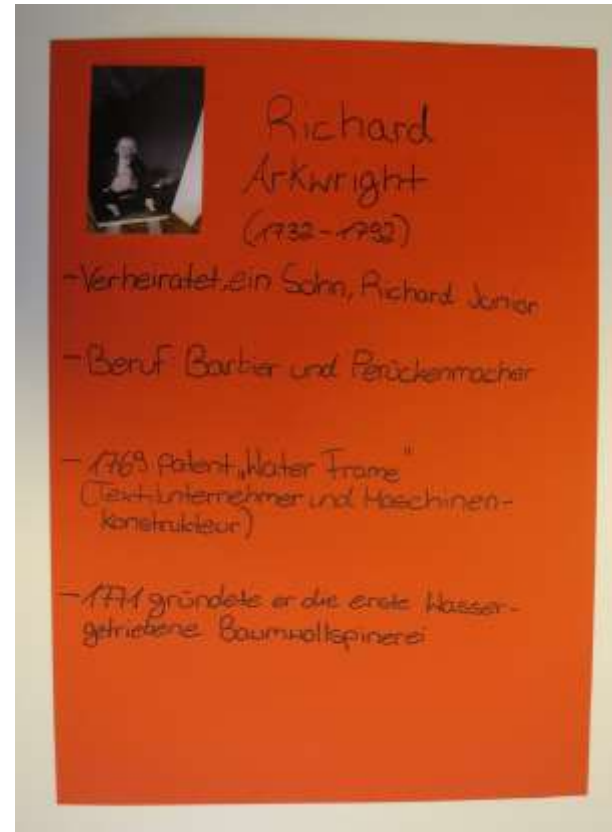 Richard
Arkwright
(1732-1792)
- Verheiratet, ein Sohn, Richard Junior
- Beruf Barbier und Perückenmacher
- 1769 Patent „Water Frame"
(Textilunternehmer und Maschinen-
konstrukteur)
- 1771 gründete er die erste Wasser-
getriebene Baumwollspinerei